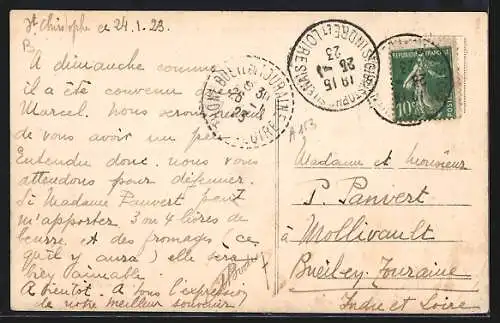 St Christophe ce 24.1.23.
A dimanche comme
il a été convenu
Marcel. Nous serons
de vous avoir un peu
Entendu donc. nous vous
attendons pour déjeuner.
Si Madame Panvert peut
m'apporter 3 ou 4 livres de
beurre, et des fromages (ce
qu'il y aura) elle sera
bien aimable.
A bientôt. A tous l'expression
de notre meilleur souvenir
ST CHRISTOPHE
INDRE ET LOIRE
19 15
23
BUEIL TOURAINE
REPUBLIQUE FRANÇAISE
10c
POSTES
A 153
Madame et Monsieur
P. Panvert
à Mollivault
Bueil-en-Touraine
Indre et Loire